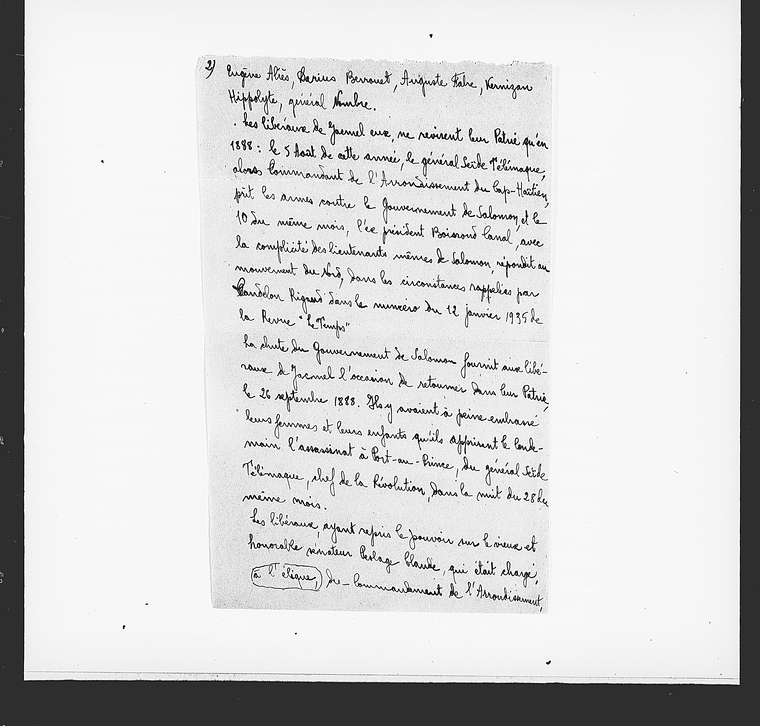 2) Eugène Aliès, Darius Berrouet, Auguste Fabre, Vernizan
Hippolyte, général Nombre.
. Les libéraux de Jacmel eux, ne revirent leur Patrie qu'en
1888 : le 5 Août de cette année, le général Seïde Télémaque,
alors Commandant de l'Arrondissement du Cap-Haïtien,
prit les armes contre le Gouvernement de Salomon, et le
10 du même mois, l'ex président Boisrond Canal, avec
la complicité des lieutenants mêmes de Salomon, répondit au
mouvement du Nord, dans les circonstances rappelées par
Candelon Rigaud dans le numéro du 12 janvier 1935 de
la Revue "Le Temps"
La chute du Gouvernement de Salomon fournit aux libé-
raux de Jacmel l'occasion de retourner dans leur Patrie,
le 26 septembre 1888. Ils y avaient à peine embrassé
leurs femmes et leurs enfants qu'ils apprirent le lende-
main l'assassinat à Port-au-Prince, du général Seïde
Télémaque, chef de la Révolution, dans la nuit du 28 du
même mois.
Les libéraux, ayant repris le pouvoir sur le vieux et
honorable sénateur Claude, qui était chargé,
à l'époque, du Commandement de l'Arrondissement,